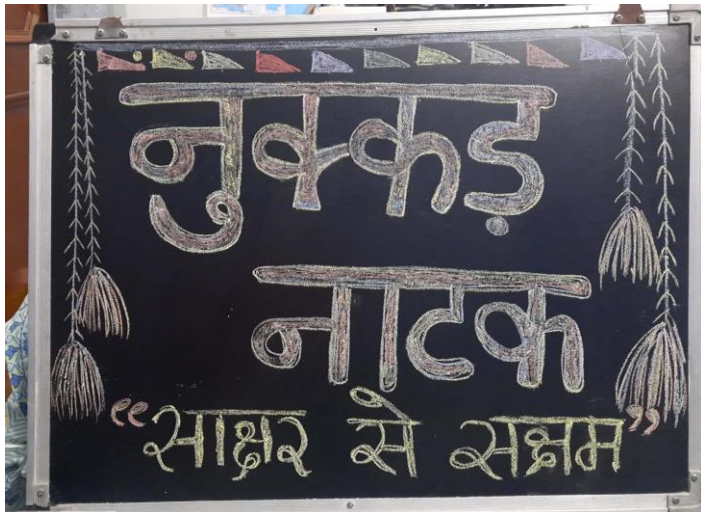 नुक्कड़
नाटक
“साक्षर से सक्षम”